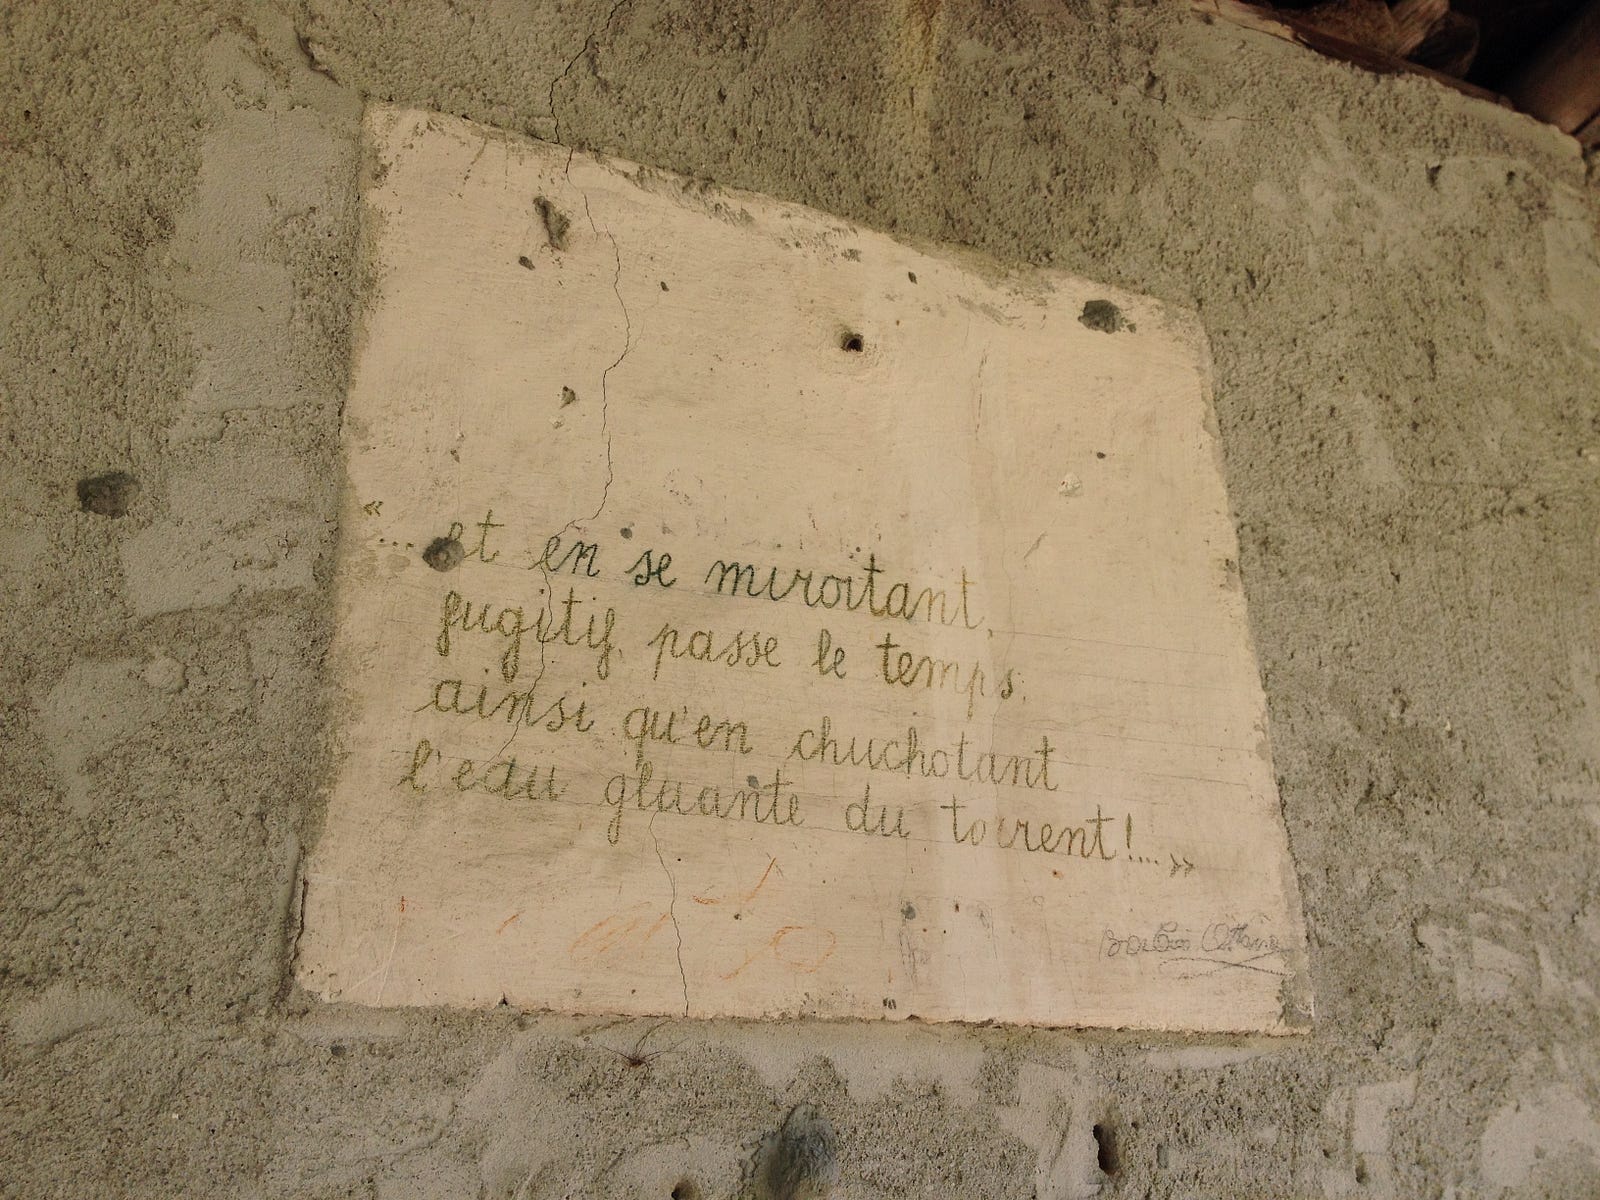 «... et en se miroitant,
fugitif, passe le temps,
ainsi qu'en chuchotant
l'eau gluante du torrent!... »